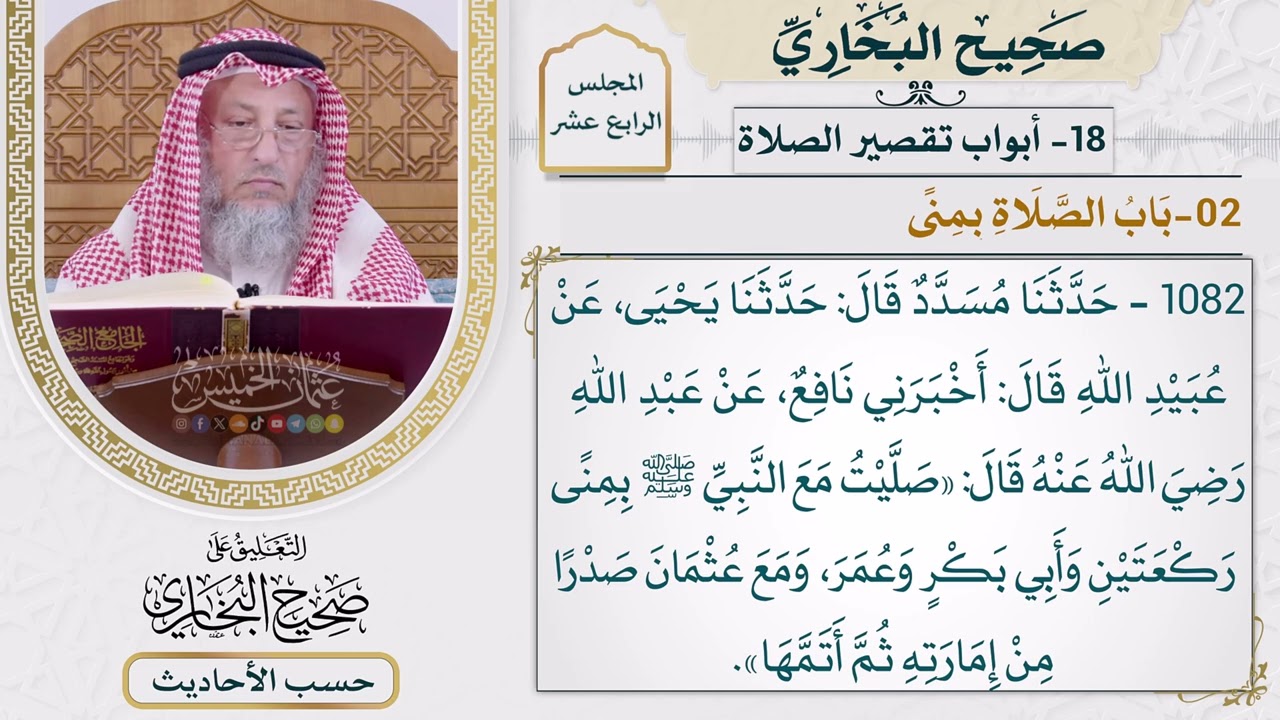 صَحِيح البُخَارِيِّ
المجلس
الرابع عشر
18- أبواب تقصير الصلاة
02-بَابُ الصَّلَاةِ بِمِنًى
1082 - حَدَّثَنَا مُسَدَّدٌ قَالَ: حَدَّثَنَا يَحْيَى، عَنْ
عُبَيْدِ اللهِ قَالَ: أَخْبَرَنِي نَافِعٌ، عَنْ عَبْدِ اللهِ
رَضِيَ اللهُ عَنْهُ قَالَ: «صَلَّيْتُ مَعَ النَّبِيِّ ﷺ بِمِنًى
رَكْعَتَيْنِ وَأَبِي بَكْرٍ وَعُمَرَ، وَمَعَ عُثْمَانَ صَدْرًا
مِنْ إِمَارَتِهِ ثُمَّ أَتَمَّهَا».
عُثمان الخميس
التَّعْلِيقُ عَلَى
صَحِيحِ البُخَارِي
حسب الأحاديث